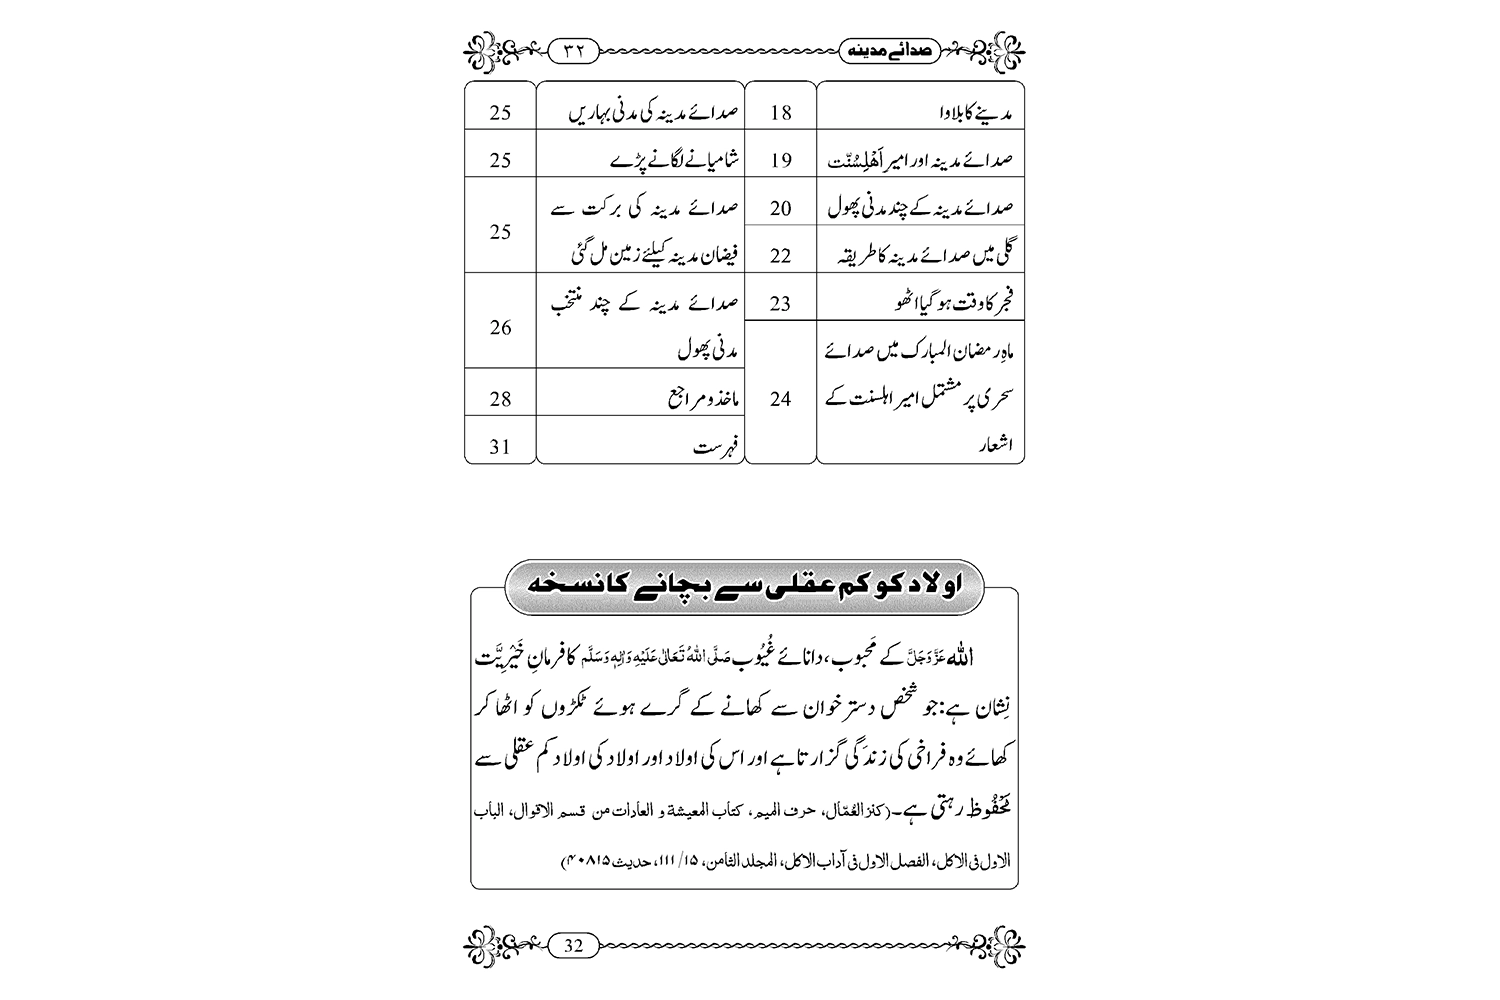 صدائے مدینہ ۳۲
مدینے کا بلاوا 18
صدائے مدینہ اور امیر اَهْلِسُنَّت 19
صدائے مدینہ کے چند مدنی پھول 20
گلی میں صدائے مدینہ کا طریقہ 22
فجر کا وقت ہو گیا اٹھو 23
ماہِ رمضان المبارک میں صدائے
سحری پر مشتمل امیر اہلسنت کے 24
اشعار
صدائے مدینہ کی مدنی بہاریں 25
شامیانے لگانے پڑے 25
صدائے مدینہ کی برکت سے
فیضان مدینہ کیلئے زمین مل گئی 25
صدائے مدینہ کے چند منتخب
مدنی پھول 26
ماخذ و مراجع 28
فہرست 31
اولاد کو کم عقلی سے بچانے کا نسخہ
اللہ عَزَّوَجَلَّ کے مَحبوب، دانائے غُیُوب صَلَّی اللہُ تَعَالٰی عَلَیْہِ وَاٰلِہٖ وَسَلَّم کا فرمانِ خَیْرِیَّت
نِشان ہے: جو شخص دسترخوان سے کھانے کے گرے ہوئے ٹکڑوں کو اٹھا کر
کھائے وہ فراخی کی زندگی گزارتا ہے اور اس کی اولاد اور اولاد کی اولاد کم عقلی سے
مَحْفُوظ رہتی ہے۔ (کنز العُمّال، حرف المیم، کتاب المعیشة و العادات من قسم الاقوال، الباب
الاول فی الاکل، الفصل الاول فی آداب الاکل، المجلد الثامن، ۱۵/ ۱۱۱، حدیث ۴۰۸۱۵)
32